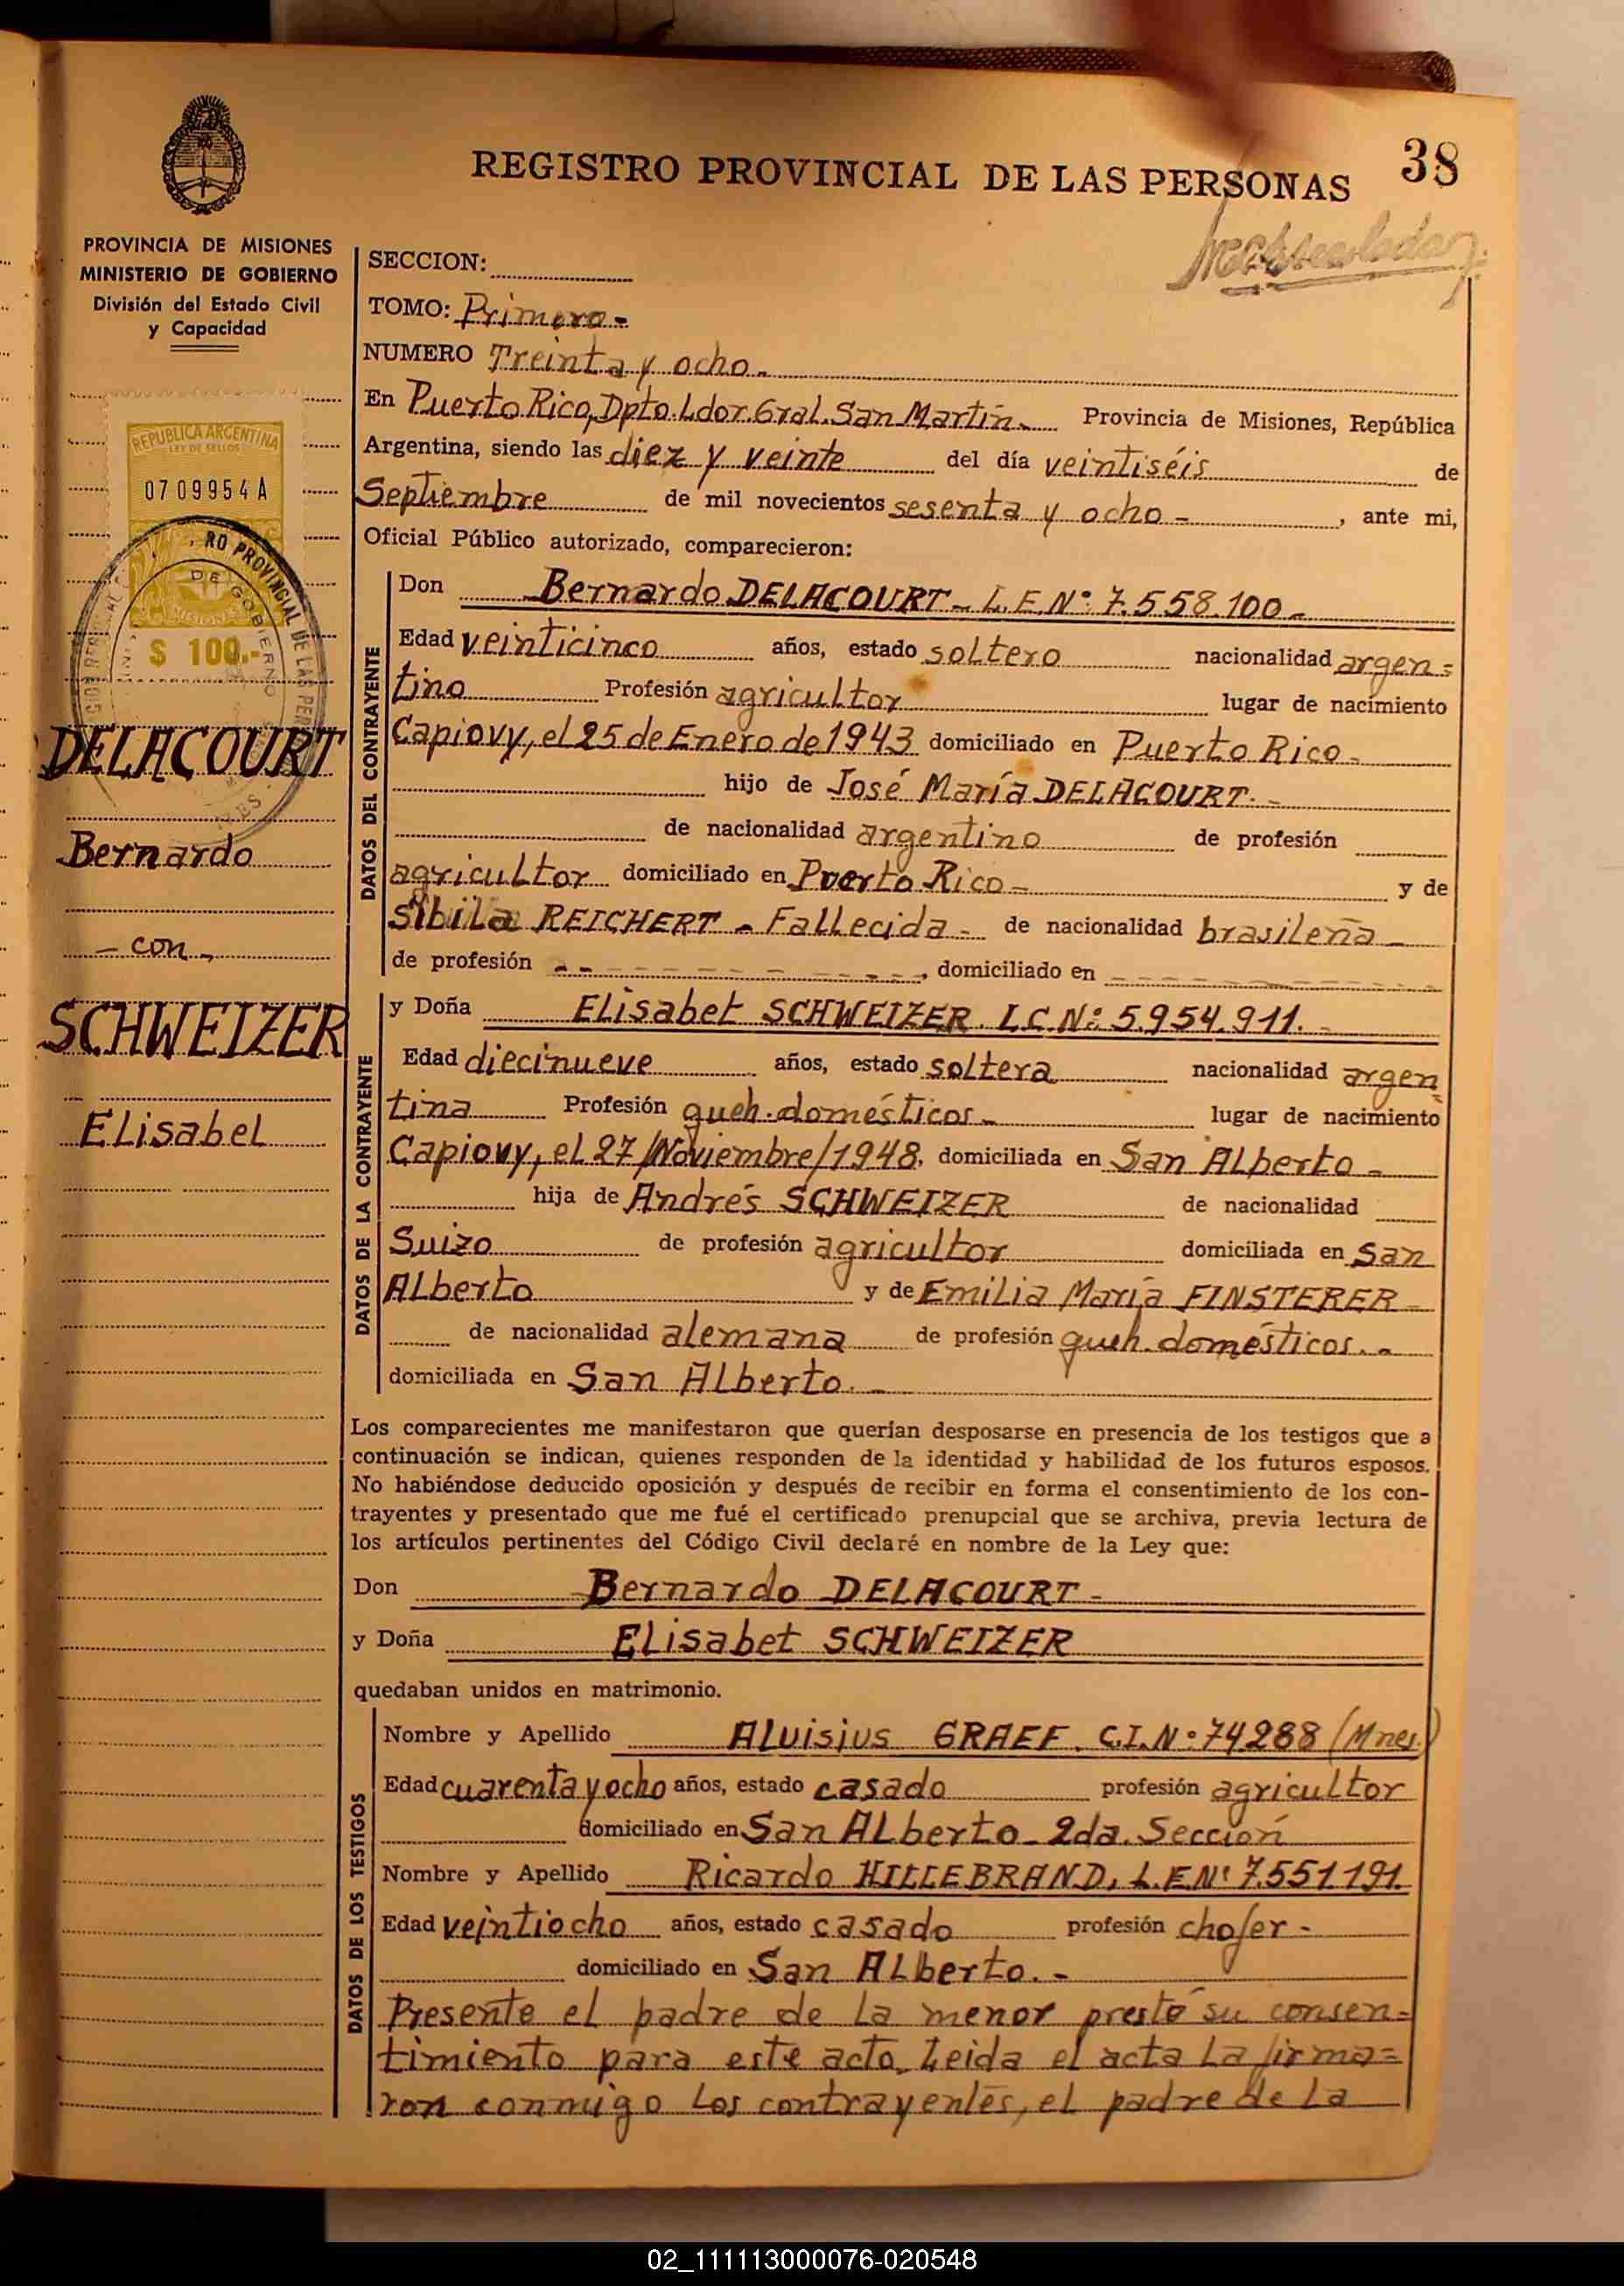 38
REGISTRO PROVINCIAL DE LAS PERSONAS
PROVINCIA DE MISIONES
MINISTERIO DE GOBIERNO
División del Estado Civil
y Capacidad
REPUBLICA ARGENTINA
LEY DE SELLOS
0709954 A
RO PROVINCIAL DE LAS PER
DE GOBIERNO
MISIONES
$ 100.-
DELACOURT
Bernardo
- con -
SCHWEIZER
Elisabel
SECCION:
TOMO: Primero -
NUMERO Treinta y ocho.-
En Puerto Rico, Dpto. Ldor. Gral. San Martín.- Provincia de Misiones, República
Argentina, siendo las diez y veinte del día veintiséis de
Septiembre de mil novecientos sesenta y ocho - , ante mi,
Oficial Público autorizado, comparecieron:
DATOS DEL CONTRAYENTE
Don Bernardo DELACOURT - L.E.Nº: 7.558.100 -
Edad veinticinco años, estado soltero nacionalidad argen=
tino Profesión agricultor lugar de nacimiento
Capiovy, el 25 de Enero de 1943 domiciliado en Puerto Rico -
hijo de José María DELACOURT. -
de nacionalidad argentino de profesión
agricultor domiciliado en Puerto Rico - y de
Sibila REICHERT - Fallecida - de nacionalidad brasileña -
de profesión - - - - - - - , domiciliado en - - - - - - -
DATOS DE LA CONTRAYENTE
y Doña Elisabet SCHWEIZER. L.C.Nº: 5.954.911. -
Edad diecinueve años, estado soltera nacionalidad argen=
tina Profesión queh. domésticos - lugar de nacimiento
Capiovy, el 27/Noviembre/1948, domiciliada en San Alberto -
hija de Andrés SCHWEIZER de nacionalidad
Suizo de profesión agricultor domiciliada en San
Alberto y de Emilia María FINSTERER -
de nacionalidad alemana de profesión queh. domésticos. -
domiciliada en San Alberto. -
Los comparecientes me manifestaron que querían desposarse en presencia de los testigos que a
continuación se indican, quienes responden de la identidad y habilidad de los futuros esposos.
No habiéndose deducido oposición y después de recibir en forma el consentimiento de los con-
trayentes y presentado que me fué el certificado prenupcial que se archiva, previa lectura de
los artículos pertinentes del Código Civil declaré en nombre de la Ley que:
Don Bernardo DELACOURT -
y Doña Elisabet SCHWEIZER
quedaban unidos en matrimonio.
DATOS DE LOS TESTIGOS
Nombre y Apellido Aluisius GRAEF. C.I.Nº 74288 (Mnes.)
Edad cuarenta y ocho años, estado casado profesión agricultor
domiciliado en San Alberto - 2da. Sección
Nombre y Apellido Ricardo HILLEBRAND, L.E.Nº 7.551.191.
Edad veintiocho años, estado casado profesión chofer -
domiciliado en San Alberto. -
Presente el padre de la menor prestó su consen=
timiento para este acto. Leida el acta la firma=
ron conmigo los contrayentes, el padre de la
02_111113000076-020548